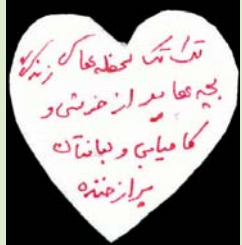 تک تک لحظه های زندگی
بچه ها پر از خوشی و
کامیابی و لبانتان
پر از خنده